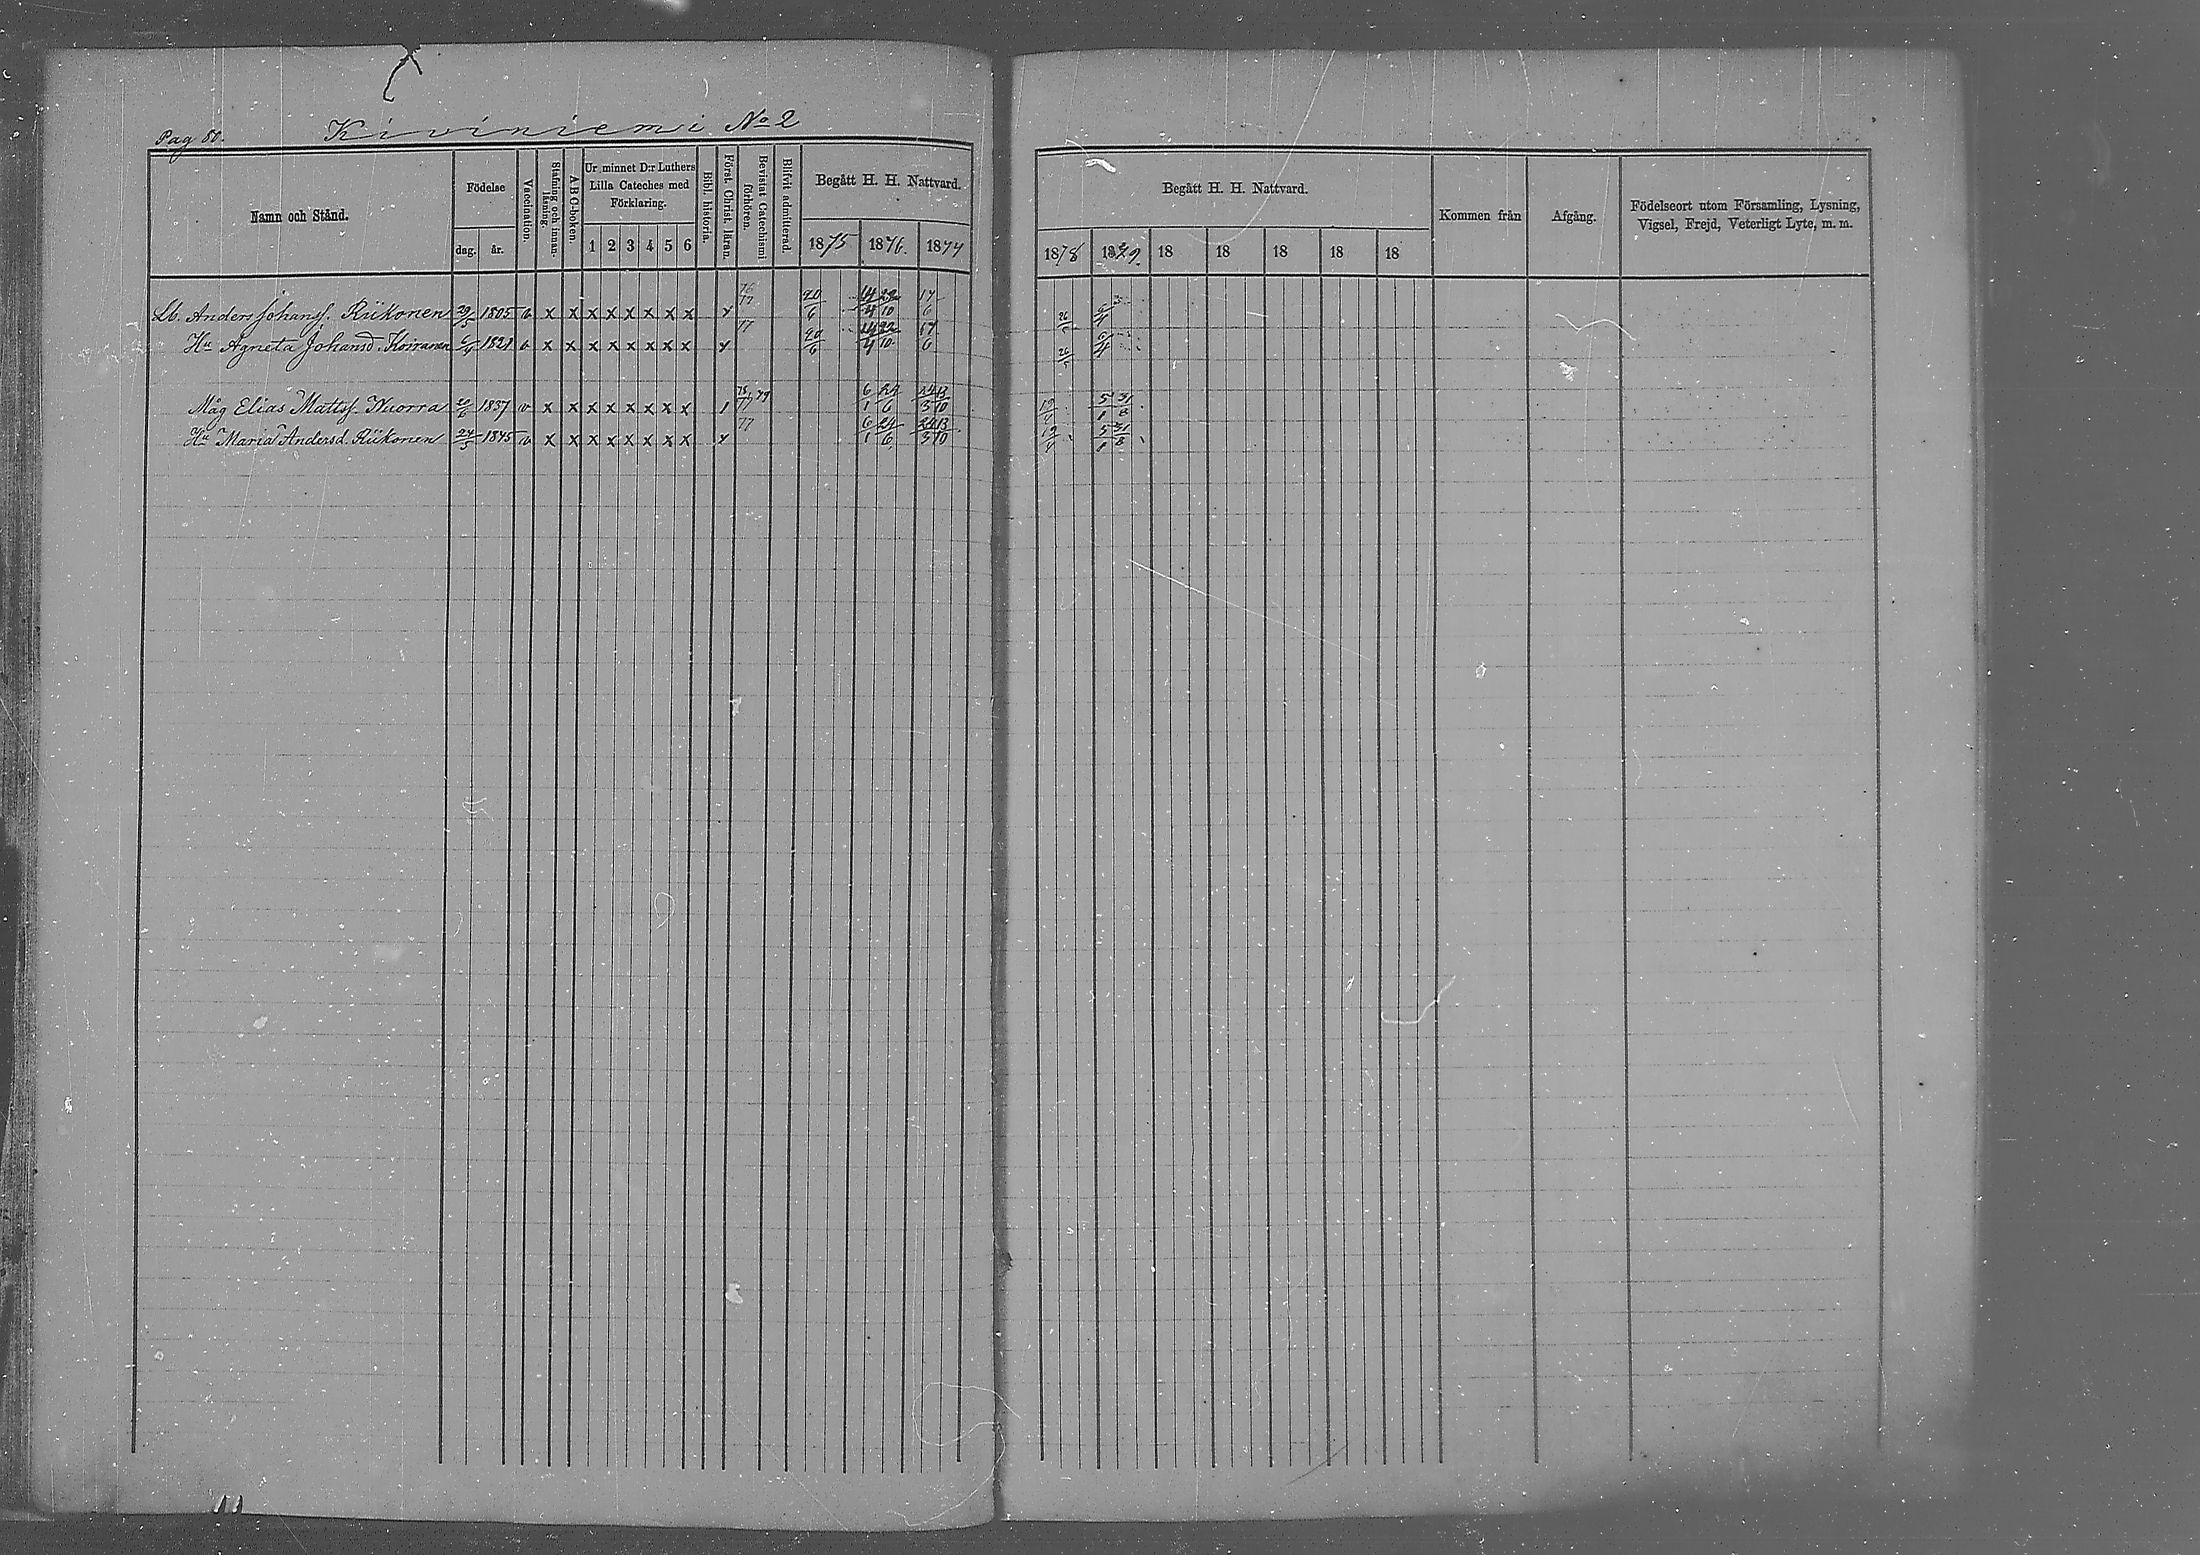 Pag 80. Kiviniemi No 2
Namn och Stånd. Födelse Vaccination. Stafning och innanläsning. A B C-boken. Ur minnet D:r Luthers Lilla Cateches med Förklaring. Bibl. historia. Först. Christ. läran. Bevistat Catechismi förhören. Blifvit admitterad. Begått H. H. Nattvard. Begått H. H. Nattvard. Kommen från Afgång. Födelseort utom Församling, Lysning, Vigsel, Frejd, Veterligt Lyte, m. m.
dag. år. 1 2 3 4 5 6 1875 1876. 1877 1878 1879. 18 18 18 18 18
Lb. Anders Johanss. Riikonen 29/5 1805 v x x x x x x x x y 76 77 20/6 14/4 22/10 17/6 26/5 6/4
Hu Agneta Johansd. Koiranen 6/4 1821 v x x x x x x x x y 77 20/6 14/4 22/10 17/6 26/5 6/4
Måg Elias Mattss. Wuorra 20/6 1837 v x x x x x x x x 1 77 79 6/1 24/6 24/3 13/10 19/4 5/1 31/8
Hu Maria Andersd. Riikonen 24/5 1845 v x x x x x x x x y 77 6/1 24/6 24/3 13/10 19/4 5/1 31/8